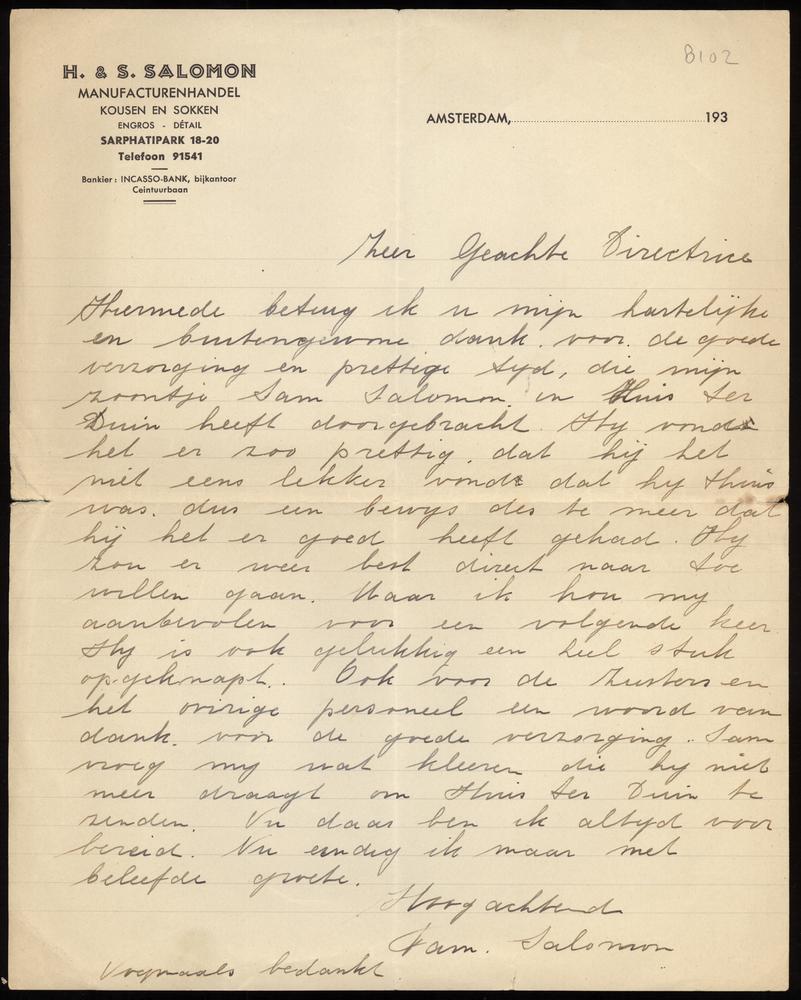 8102
H. & S. SALOMON
MANUFACTURENHANDEL
KOUSEN EN SOKKEN
ENGROS - DÉTAIL
SARPHATIPARK 18-20
Telefoon 91541
Bankier: INCASSO-BANK, bijkantoor
Ceintuurbaan
AMSTERDAM, 193
Zeer Geachte Directrice
Hiermede betuig ik u mijn hartelijke
en buitengewone dank. voor. de goede
verzorging en prettige tyd, die mijn
zoontje Sam Salomon. in Huis ter
Duin heeft doorgebracht. Hy vond
het er zoo prettig. dat hij het
niet eens lekker vond dat hy thuis
was. dus een bewys des te meer dat
hij het er goed heeft gehad. Hy
zou er weer best direct naar toe
willen gaan. Maar ik hou my
aanbevolen voor een volgende keer
Hy is ook gelukkig een heel stuk
opgeknapt. Ook voor de Zusters en
het overige personeel een woord van
dank. voor de goede verzorging. Sam
vroeg my wat kleeren die hy niet
meer draagt om Huis ter Duin te
zenden. Nu daar ben ik altyd voor
bereid. Nu eindig ik maar met
beleefde groete.
Hoogachtend
Fam. Salomon
Nogmaals bedankt